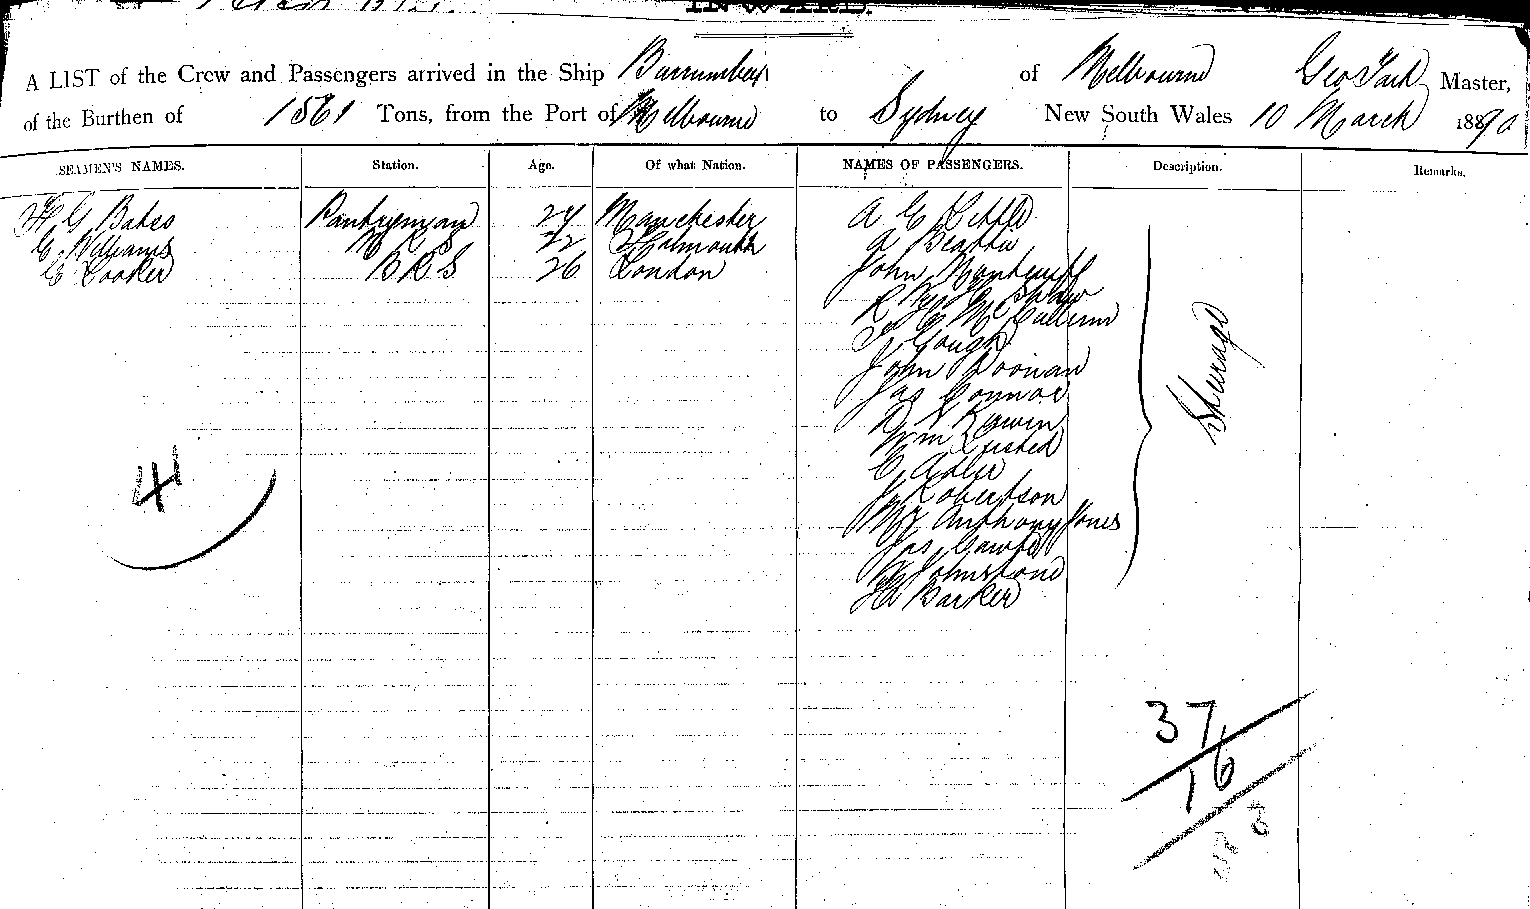 INWARD.
A LIST of the Crew and Passengers arrived in the Ship Burrumbeet of Melbourne Geo Tait Master,
of the Burthen of 1561 Tons, from the Port of Melbourne to Sydney New South Wales 10 March 1890
SEAMEN'S NAMES. Station. Age. Of what Nation. NAMES OF PASSENGERS. Description. Remarks.
H G Bates Pantryman 24 Manchester A E Little
G Williams 22 Falmouth A Beattie
C Cooker B R S 26 London John
R
E McCallum
T Gough
John Noonan
Jas Connor
Steerage
Wm Lusted
C Adler
J Robertson
41
Mr Anthony Jones
Jas
Johnstone
Barker
37
16